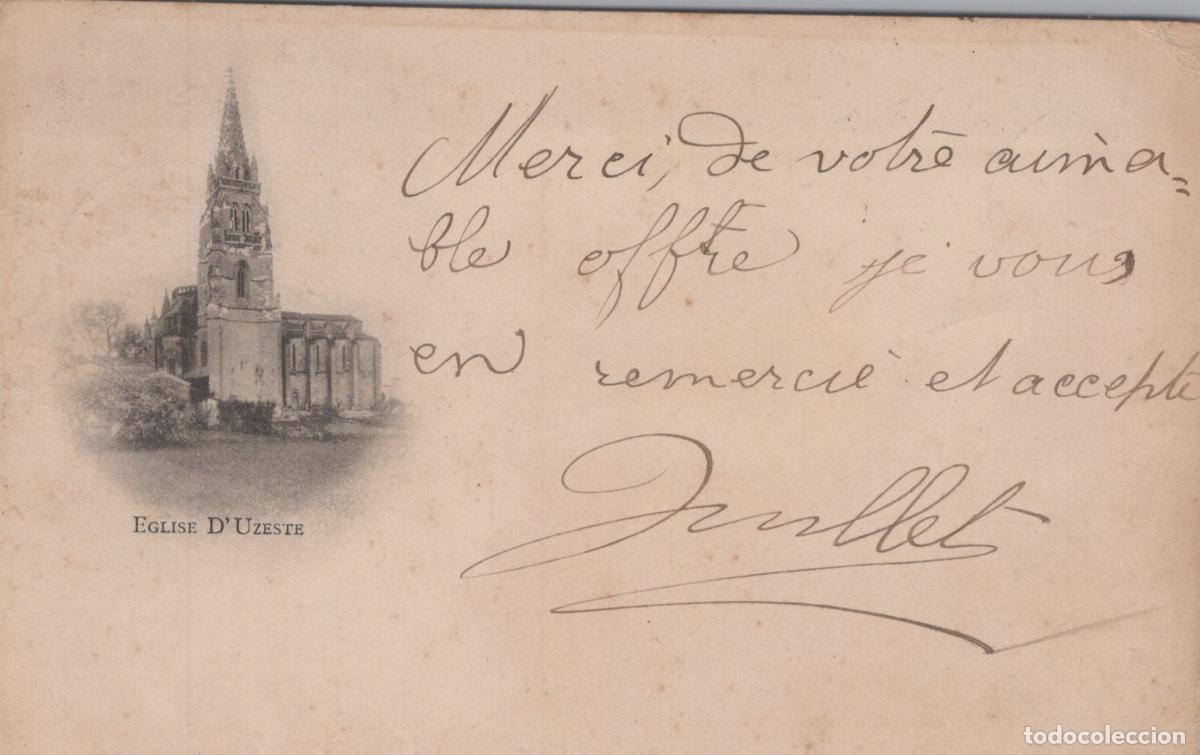 Merci, de votre aima=
ble offre je vous
en remercie et accepte
EGLISE D'UZESTE
todocoleccion